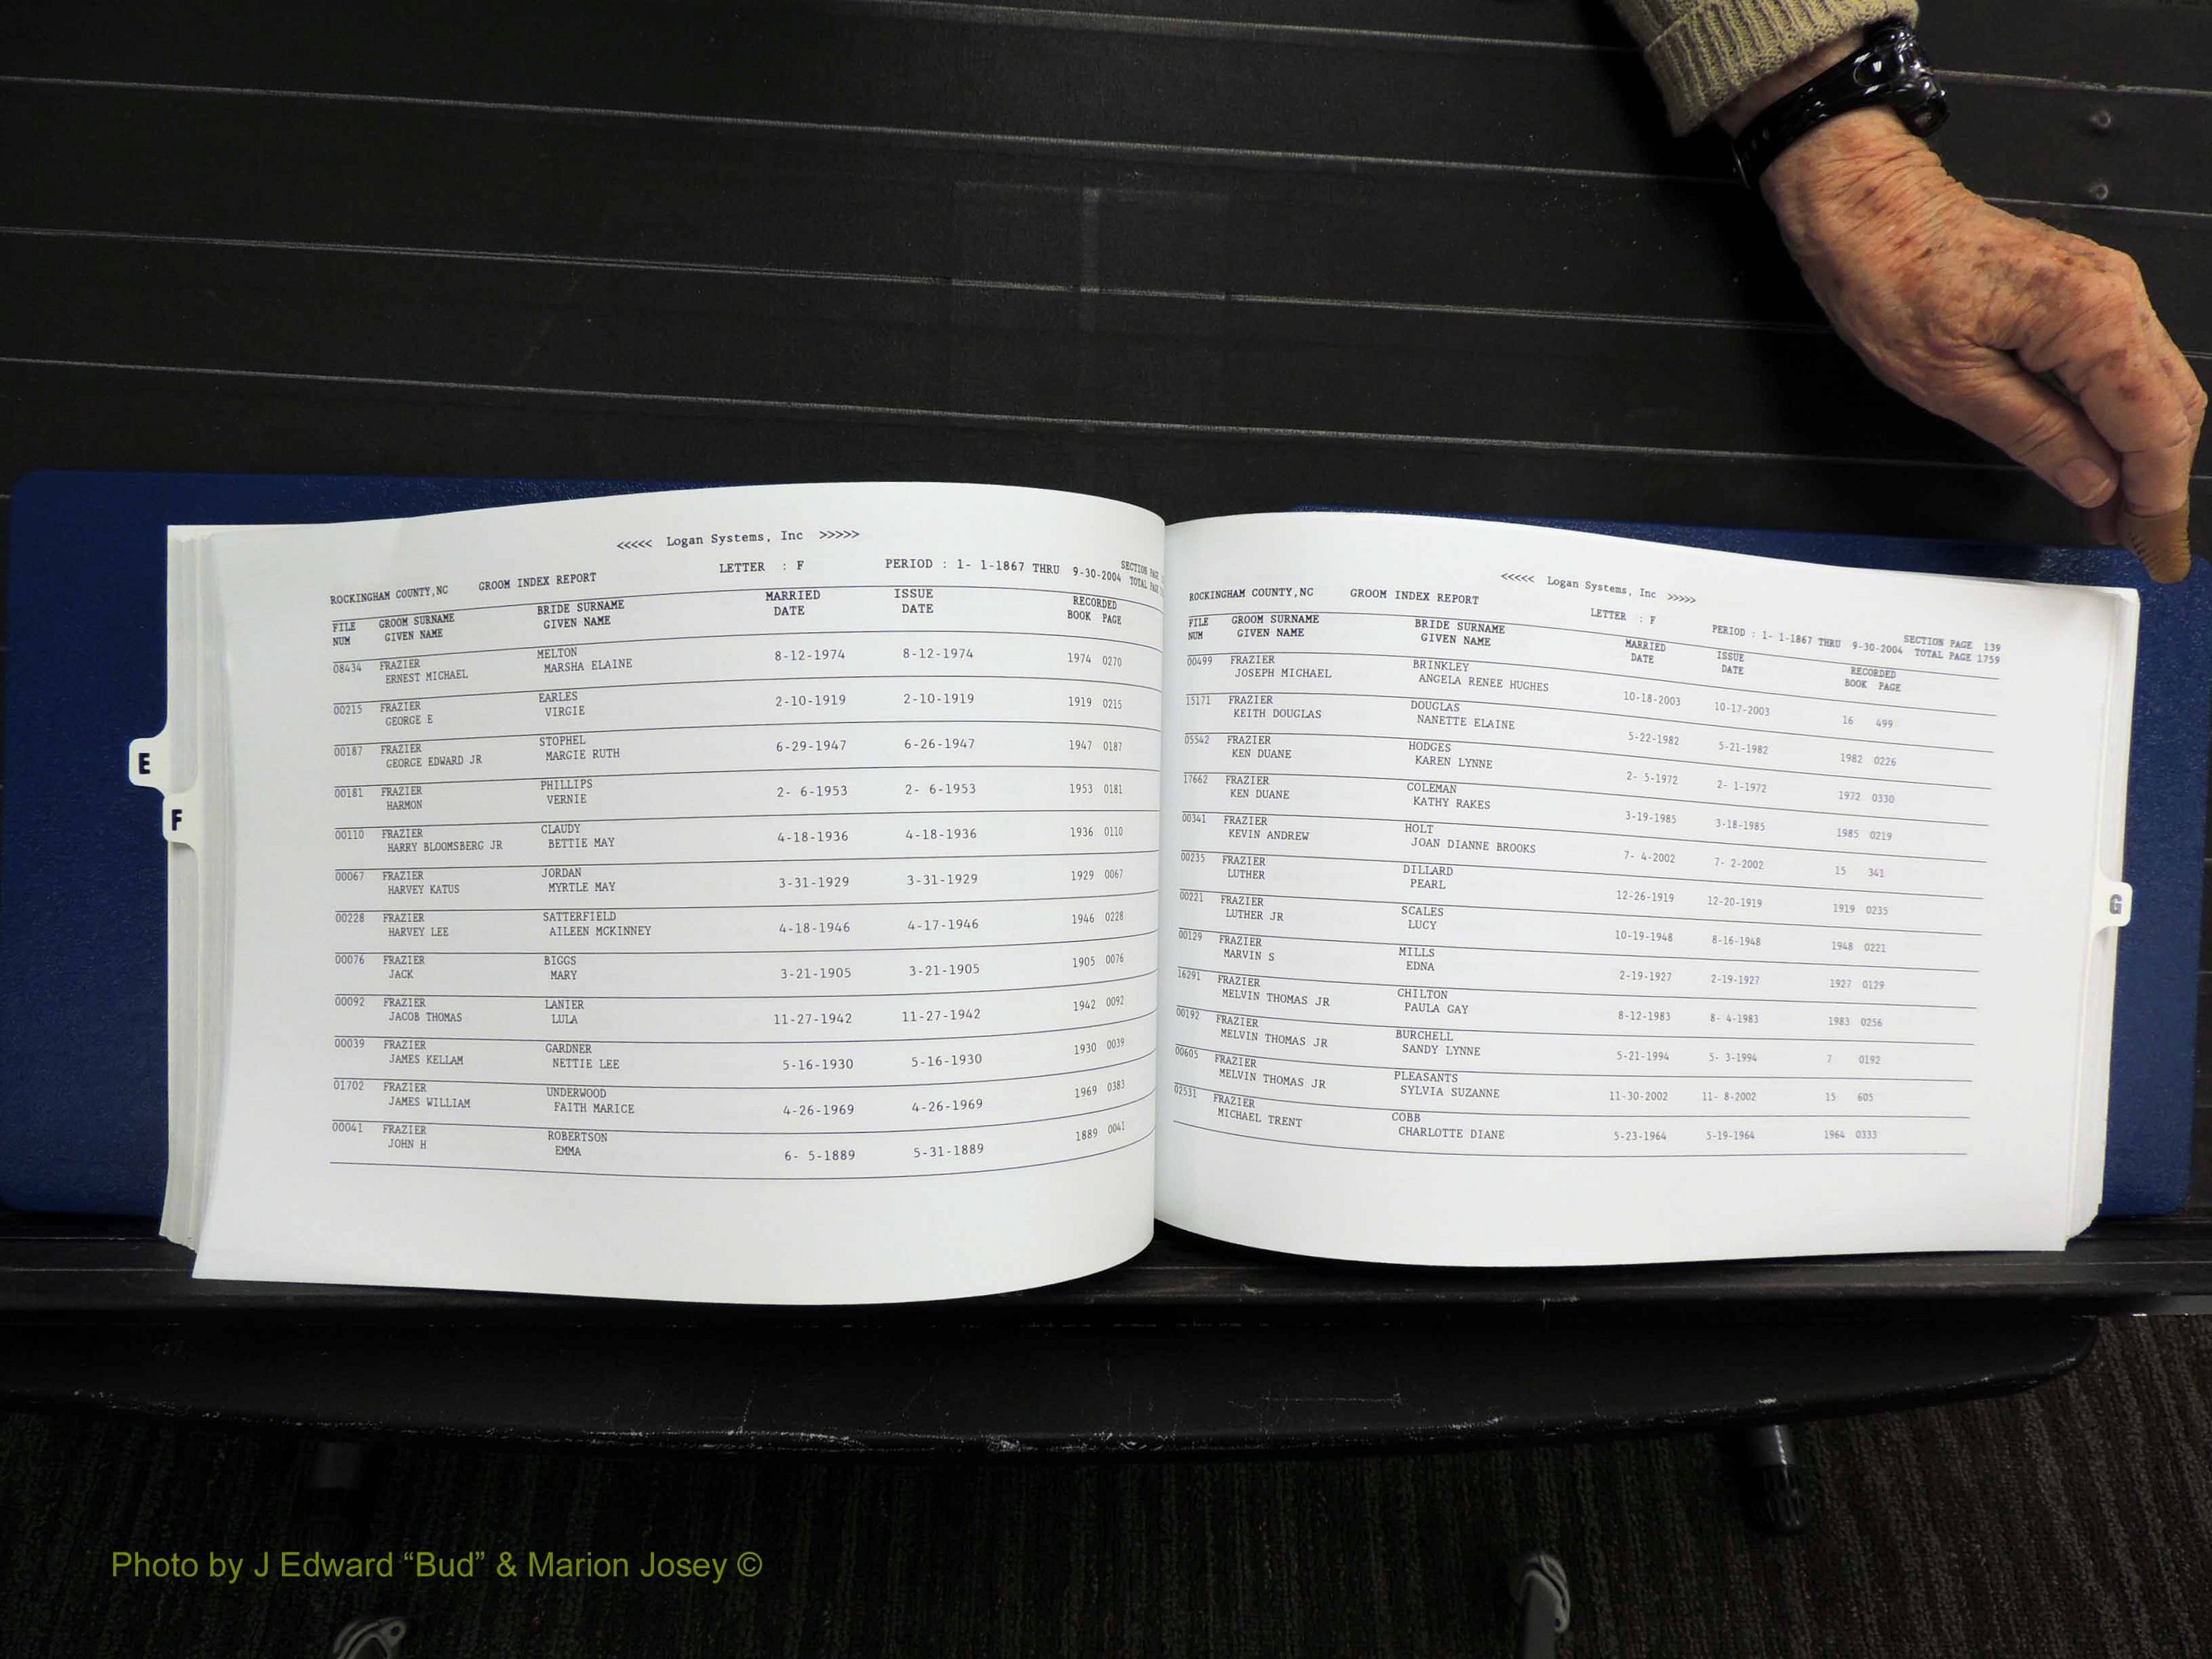 <<<<< Logan Systems, Inc >>>>>
ROCKINGHAM COUNTY,NC GROOM INDEX REPORT LETTER : F PERIOD : 1- 1-1867 THRU 9-30-2004 SECTION PAGE
TOTAL PAGE
FILE GROOM SURNAME BRIDE SURNAME MARRIED ISSUE RECORDED
NUM GIVEN NAME GIVEN NAME DATE DATE BOOK PAGE
08434 FRAZIER MELTON 8-12-1974 8-12-1974 1974 0270
ERNEST MICHAEL MARSHA ELAINE
00215 FRAZIER EARLES 2-10-1919 2-10-1919 1919 0215
GEORGE E VIRGIE
00187 FRAZIER STOPHEL 6-29-1947 6-26-1947 1947 0187
GEORGE EDWARD JR MARGIE RUTH
00181 FRAZIER PHILLIPS 2- 6-1953 2- 6-1953 1953 0181
HARMON VERNIE
00110 FRAZIER CLAUDY 4-18-1936 4-18-1936 1936 0110
HARRY BLOOMSBERG JR BETTIE MAY
00067 FRAZIER JORDAN 3-31-1929 3-31-1929 1929 0067
HARVEY KATUS MYRTLE MAY
00228 FRAZIER SATTERFIELD 4-18-1946 4-17-1946 1946 0228
HARVEY LEE AILEEN MCKINNEY
00076 FRAZIER BIGGS 3-21-1905 3-21-1905 1905 0076
JACK MARY
00092 FRAZIER LANIER 11-27-1942 11-27-1942 1942 0092
JACOB THOMAS LULA
00039 FRAZIER GARDNER 5-16-1930 5-16-1930 1930 0039
JAMES KELLAM NETTIE LEE
01702 FRAZIER UNDERWOOD 4-26-1969 4-26-1969 1969 0383
JAMES WILLIAM FAITH MARICE
00041 FRAZIER ROBERTSON 6- 5-1889 5-31-1889 1889 0041
JOHN H EMMA
E
F
<<<<< Logan Systems, Inc >>>>>
ROCKINGHAM COUNTY,NC GROOM INDEX REPORT LETTER : F PERIOD : 1- 1-1867 THRU 9-30-2004 SECTION PAGE 139
TOTAL PAGE 1759
FILE GROOM SURNAME BRIDE SURNAME MARRIED ISSUE RECORDED
NUM GIVEN NAME GIVEN NAME DATE DATE BOOK PAGE
00499 FRAZIER BRINKLEY 10-18-2003 10-17-2003 16 499
JOSEPH MICHAEL ANGELA RENEE HUGHES
15171 FRAZIER DOUGLAS 5-22-1982 5-21-1982 1982 0226
KEITH DOUGLAS NANETTE ELAINE
05542 FRAZIER HODGES 2- 5-1972 2- 1-1972 1972 0330
KEN DUANE KAREN LYNNE
17662 FRAZIER COLEMAN 3-19-1985 3-18-1985 1985 0219
KEN DUANE KATHY RAKES
00341 FRAZIER HOLT 7- 4-2002 7- 2-2002 15 341
KEVIN ANDREW JOAN DIANNE BROOKS
00235 FRAZIER DILLARD 12-26-1919 12-20-1919 1919 0235
LUTHER PEARL
00221 FRAZIER SCALES 10-19-1948 8-16-1948 1948 0221
LUTHER JR LUCY
00129 FRAZIER MILLS 2-19-1927 2-19-1927 1927 0129
MARVIN S EDNA
16291 FRAZIER CHILTON 8-12-1983 8- 4-1983 1983 0256
MELVIN THOMAS JR PAULA GAY
00192 FRAZIER BURCHELL 5-21-1994 5- 3-1994 7 0192
MELVIN THOMAS JR SANDY LYNNE
00605 FRAZIER PLEASANTS 11-30-2002 11- 8-2002 15 605
MELVIN THOMAS JR SYLVIA SUZANNE
02531 FRAZIER COBB 5-23-1964 5-19-1964 1964 0333
MICHAEL TRENT CHARLOTTE DIANE
G
Photo by J Edward “Bud” & Marion Josey ©